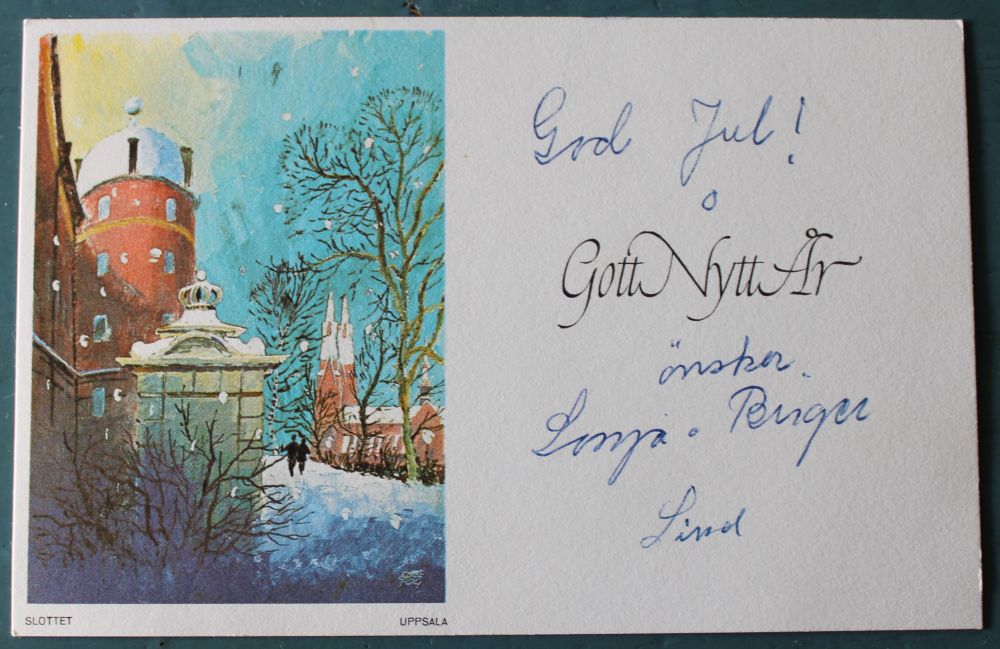 God Jul!
o
Gott Nytt År
önsker.
Sonja o Birger
Lind
SLOTTET
UPPSALA